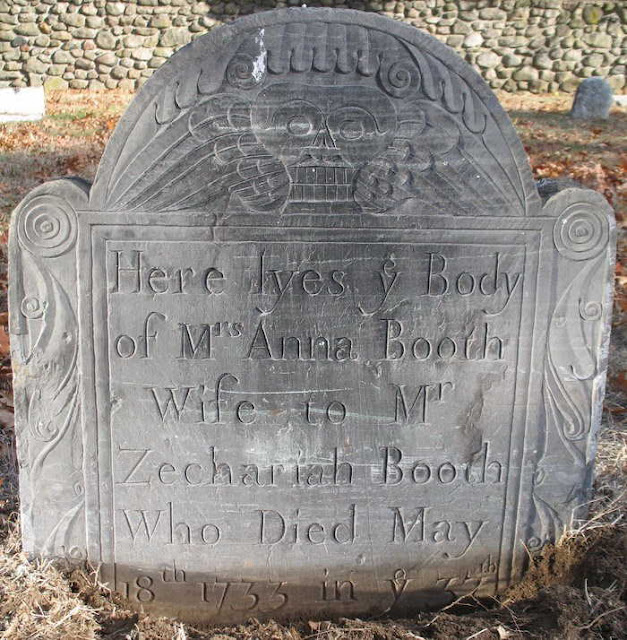 Here lyes ye Body
of Mrs Anna Booth
Wife to Mr
Zechariah Booth
Who Died May
18th 1733 in ye 37th